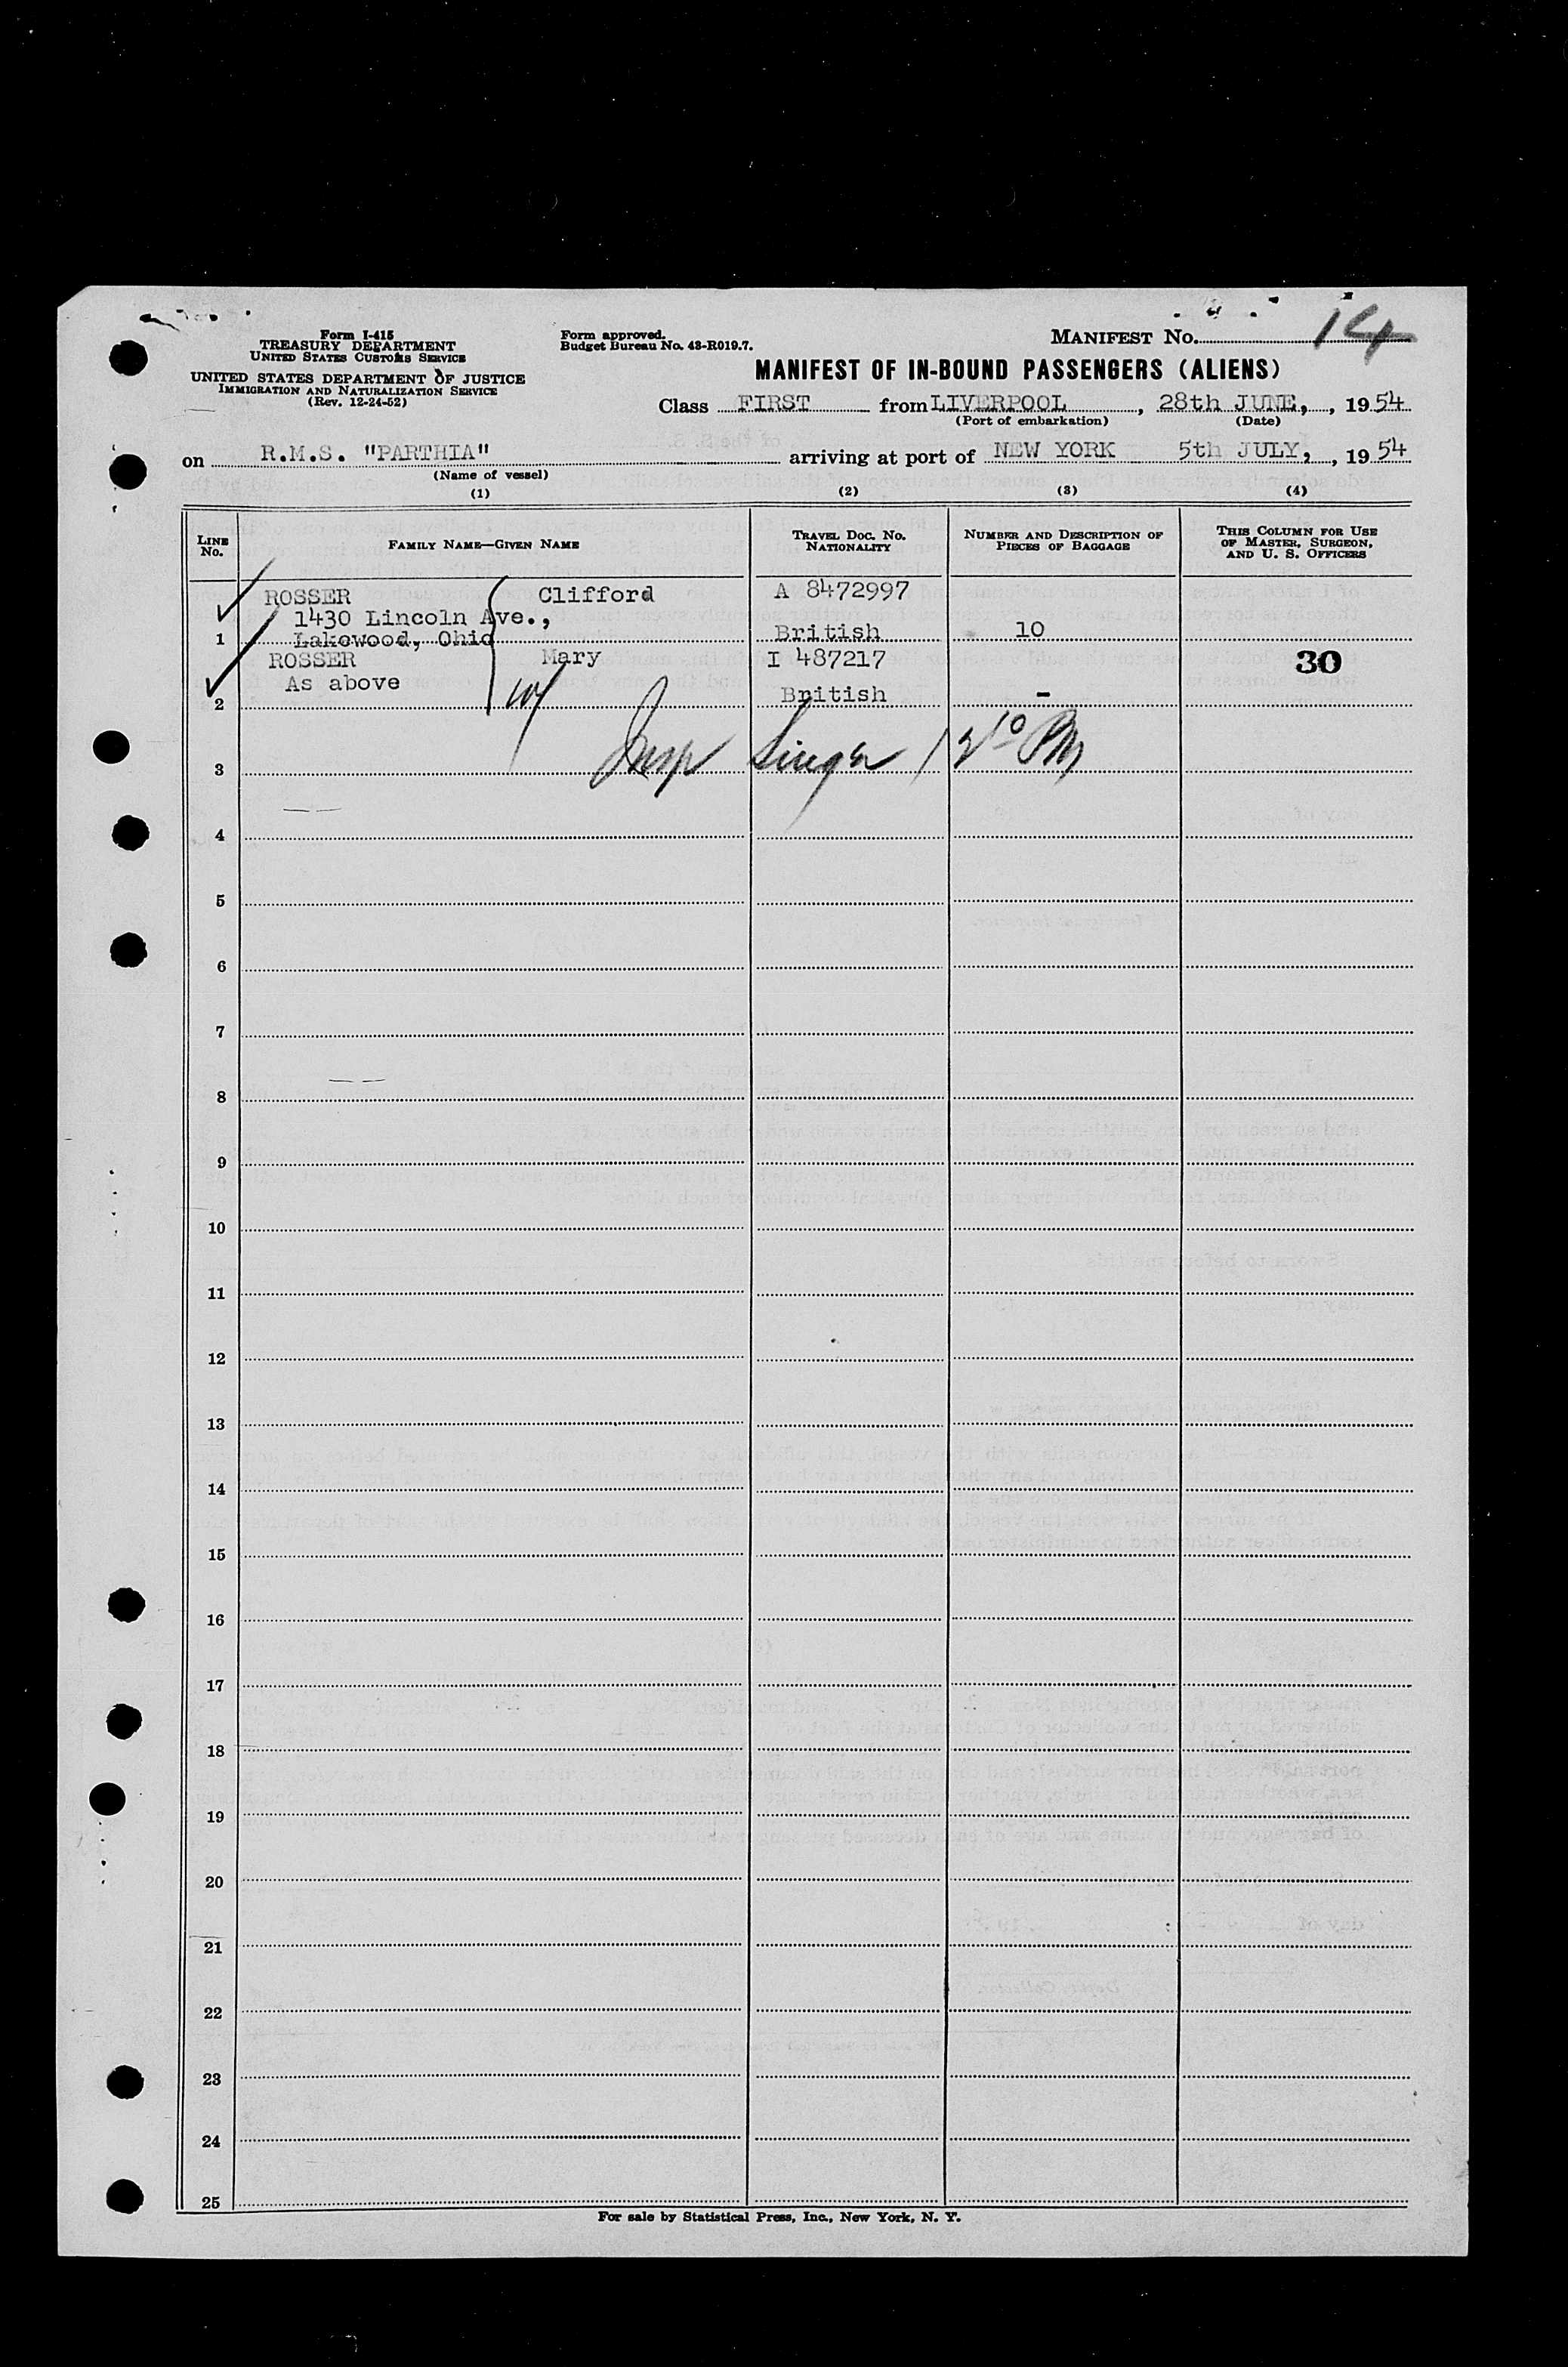 Form I-415
TREASURY DEPARTMENT
UNITED STATES CUSTOMS SERVICE
UNITED STATES DEPARTMENT OF JUSTICE
IMMIGRATION AND NATURALIZATION SERVICE
(Rev. 12-24-52)
Form approved.
Budget Bureau No. 43-R019.7.
MANIFEST No. 14
MANIFEST OF IN-BOUND PASSENGERS (ALIENS)
Class FIRST from LIVERPOOL, 28th JUNE, , 1954
(Port of embarkation) (Date)
on R.M.S. "PARTHIA" arriving at port of NEW YORK 5th JULY, , 1954
(Name of vessel)
(1) (2) (3) (4)
LINE No. FAMILY NAME—GIVEN NAME TRAVEL DOC. NO. NATIONALITY NUMBER AND DESCRIPTION OF PIECES OF BAGGAGE THIS COLUMN FOR USE OF MASTER, SURGEON, AND U. S. OFFICERS
ROSSER Clifford A 8472997
1430 Lincoln Ave.,
1 Lakewood, Ohio British 10
ROSSER Mary I 487217 30
As above
2 British -
3 Insp Singer 12 10 PM
4
5
6
7
8
9
10
11
12
13
14
15
16
17
18
19
20
21
22
23
24
25
For sale by Statistical Press, Inc., New York, N. Y.